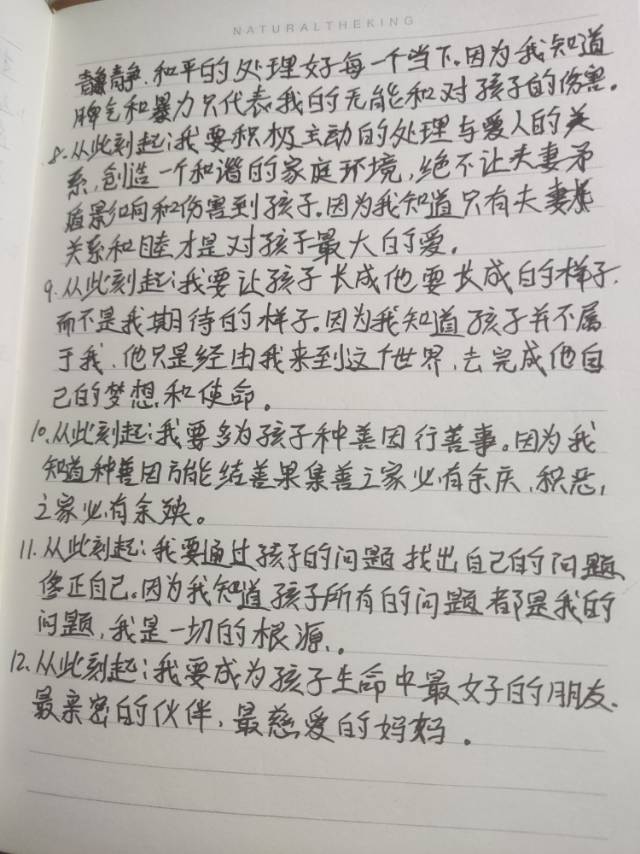 NATURALTHEKING
静静、和平的处理好每一个当下。因为我知道
脾气和暴力只代表我的无能和对孩子的伤害。
8.从此刻起:我要积极主动的处理与爱人的关
系,创造一个和谐的家庭环境,绝不让夫妻矛
盾影响和伤害到孩子。因为我知道只有夫妻
关系和睦才是对孩子最大的爱。
9.从此刻起:我要让孩子长成他要长成的样子,
而不是我期待的样子。因为我知道孩子并不属
于我、他只是经由我来到这个世界、去完成他自
己的梦想和使命。
10.从此刻起:我要多为孩子种善因行善事。因为我
知道种善因方能结善果集善之家必有余庆、积恶,
之家必有余殃。
11.从此刻起:我要通过孩子的问题找出自己的问题
修正自己。因为我知道孩子所有的问题都是我的
问题,我是一切的根源。
12.从此刻起:我要成为孩子生命中最好的朋友、
最亲密的伙伴,最慈爱的妈妈。